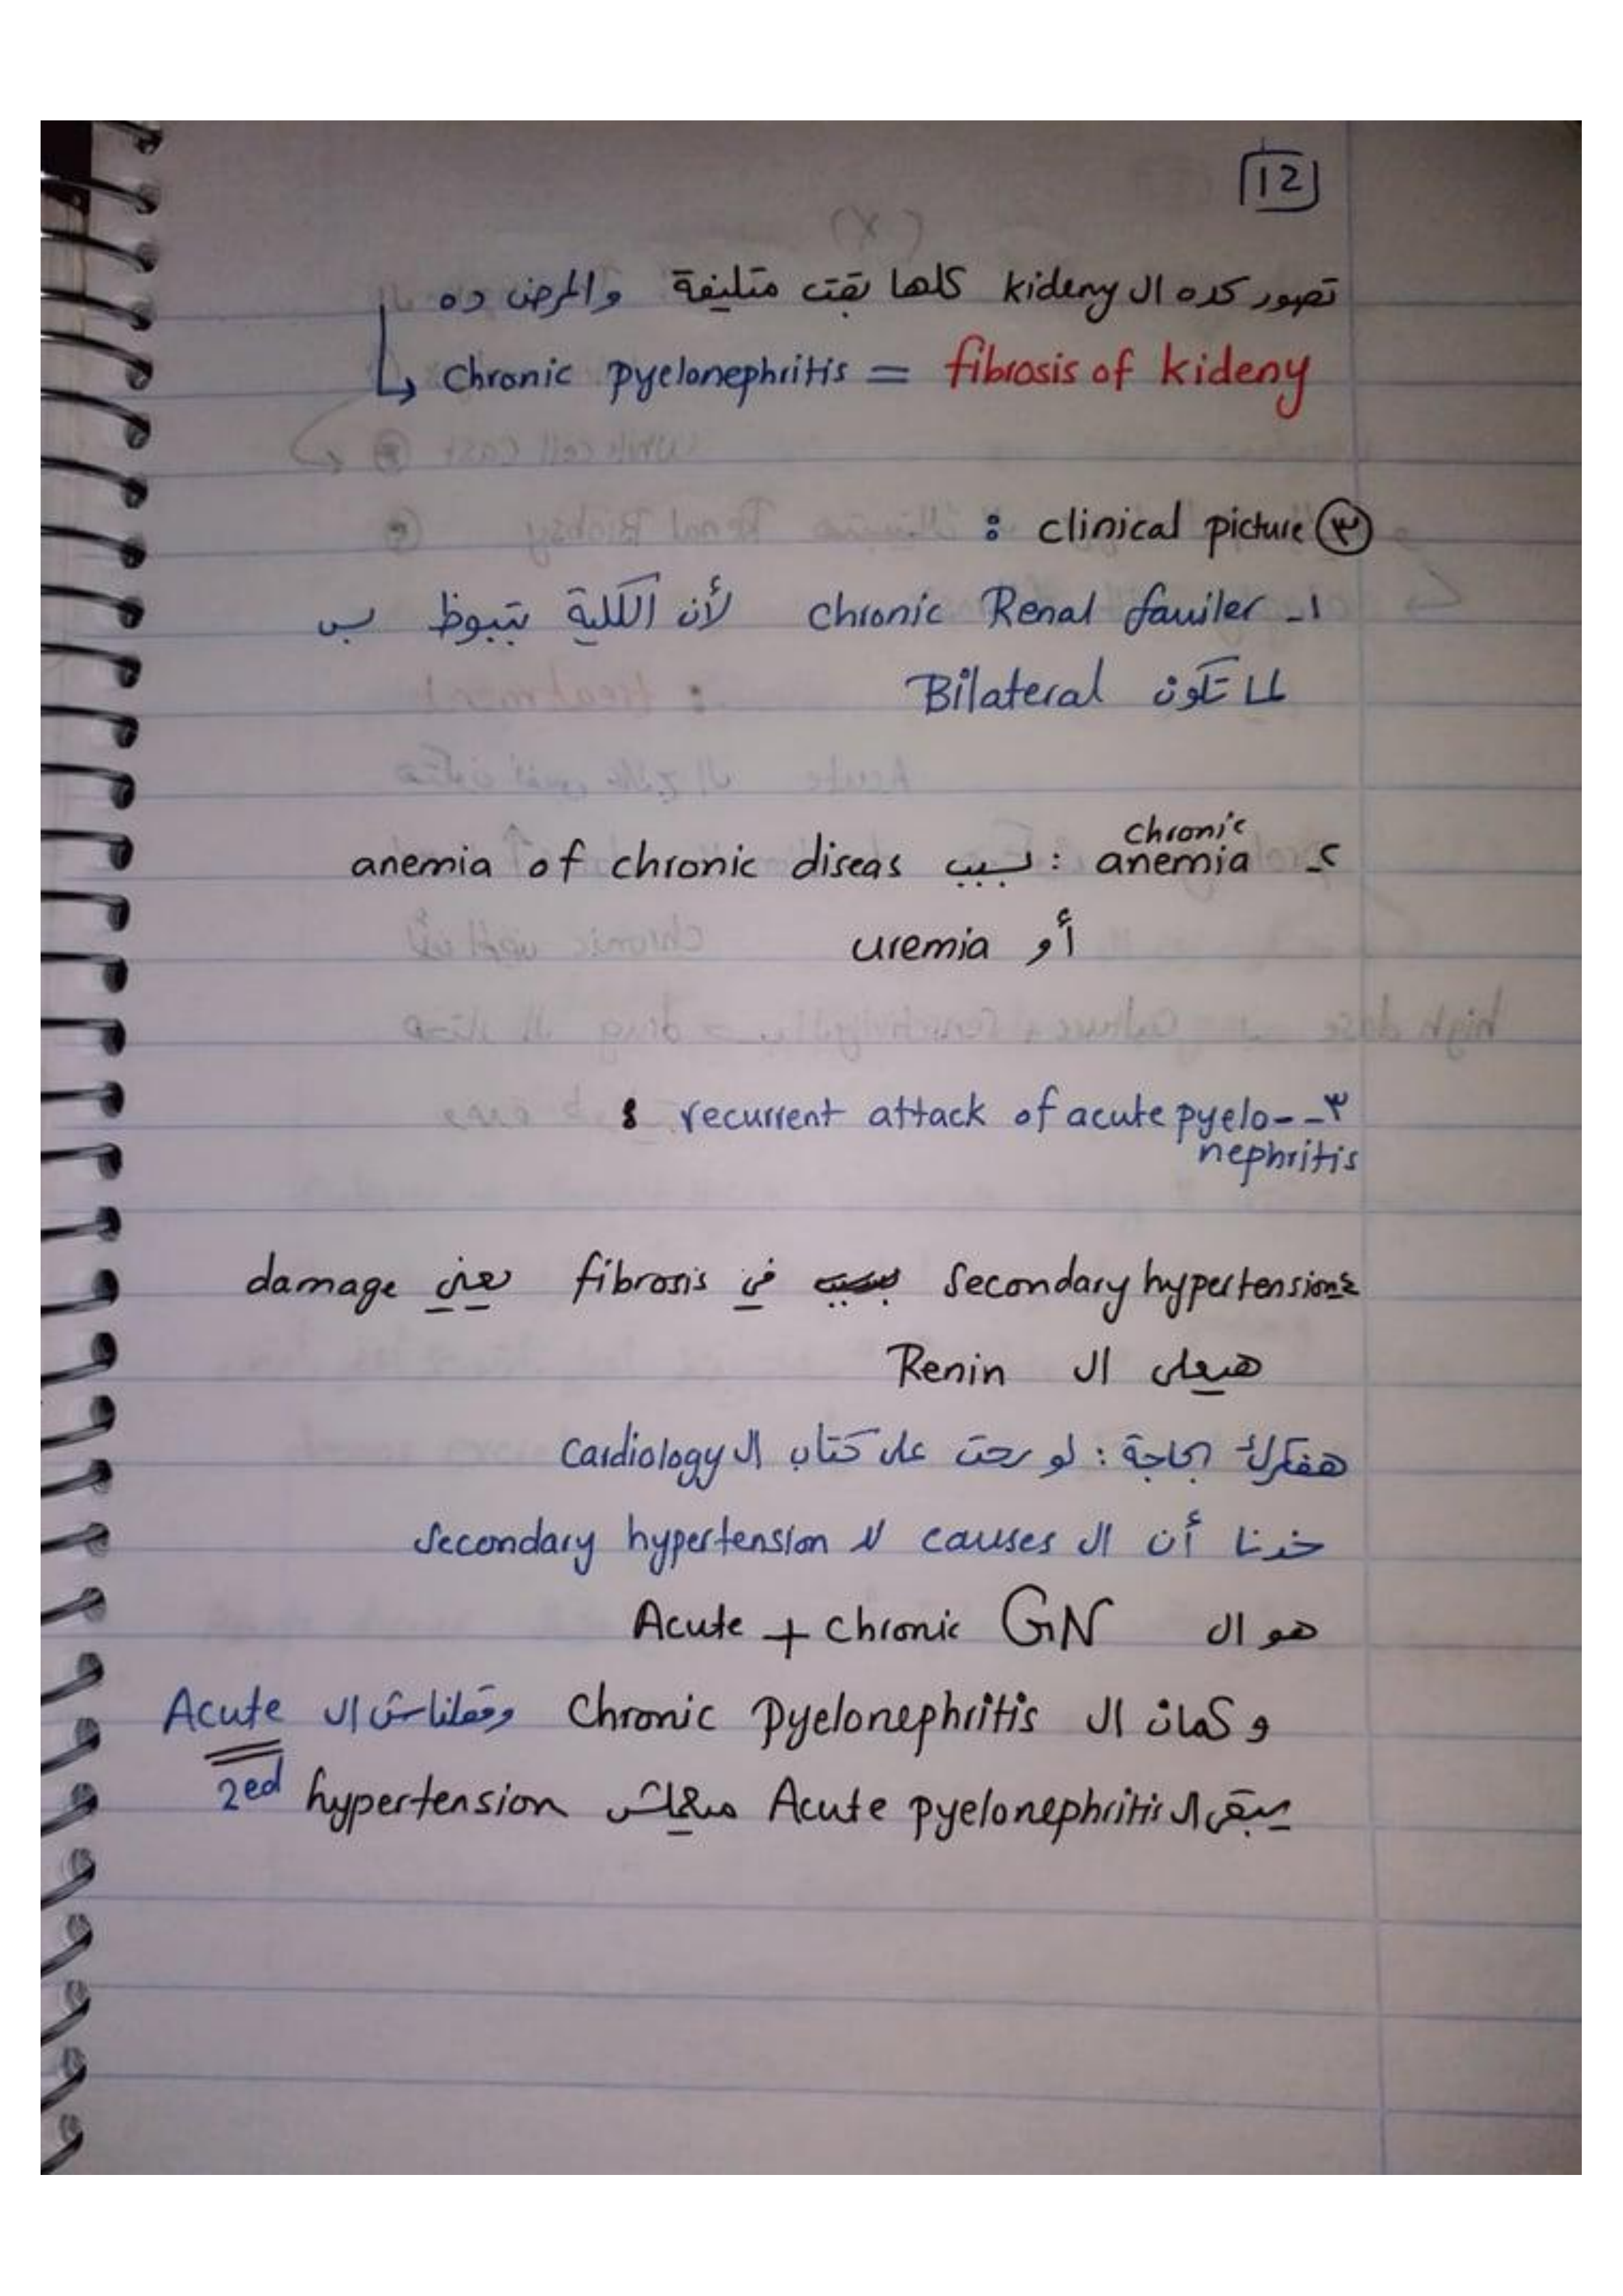 12
تصور كده ال kideny كلها بقت متليفة والمرض ده
Chronic pyelonephritis = fibrosis of kideny
٣ clinical picture :
١- chronic Renal fauiler لأن الكلية بتبوظ بس
لما تكون Bilateral
٢- chronic anemia : بسبب anemia of chronic diseas
أو uremia
٣- recurrent attack of acute pyelo-
nephritis :
٤ Secondary hypertension في fibrosis يعني damage
هيعلى ال Renin
هفكرك بحاجة : لو رحت على كتاب ال Cardiology
خدنا أن ال causes لل Secondary hypertension
هو ال Acute + chronic GN
وكمان ال Chronic Pyelonephritis وقلناش ال Acute
يبقى ال Acute pyelonephritis معهاش 2ed hypertension